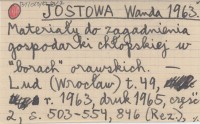 JOSTOWA Wanda 1963.
Materiały do zagadnienia
gospodarki chłopskiej w
"borach" orawskich. —
Lud (Wrocław) t. 49,
r. 1963, druk 1965, część
2, s. 503-554, 846 (Rez.),